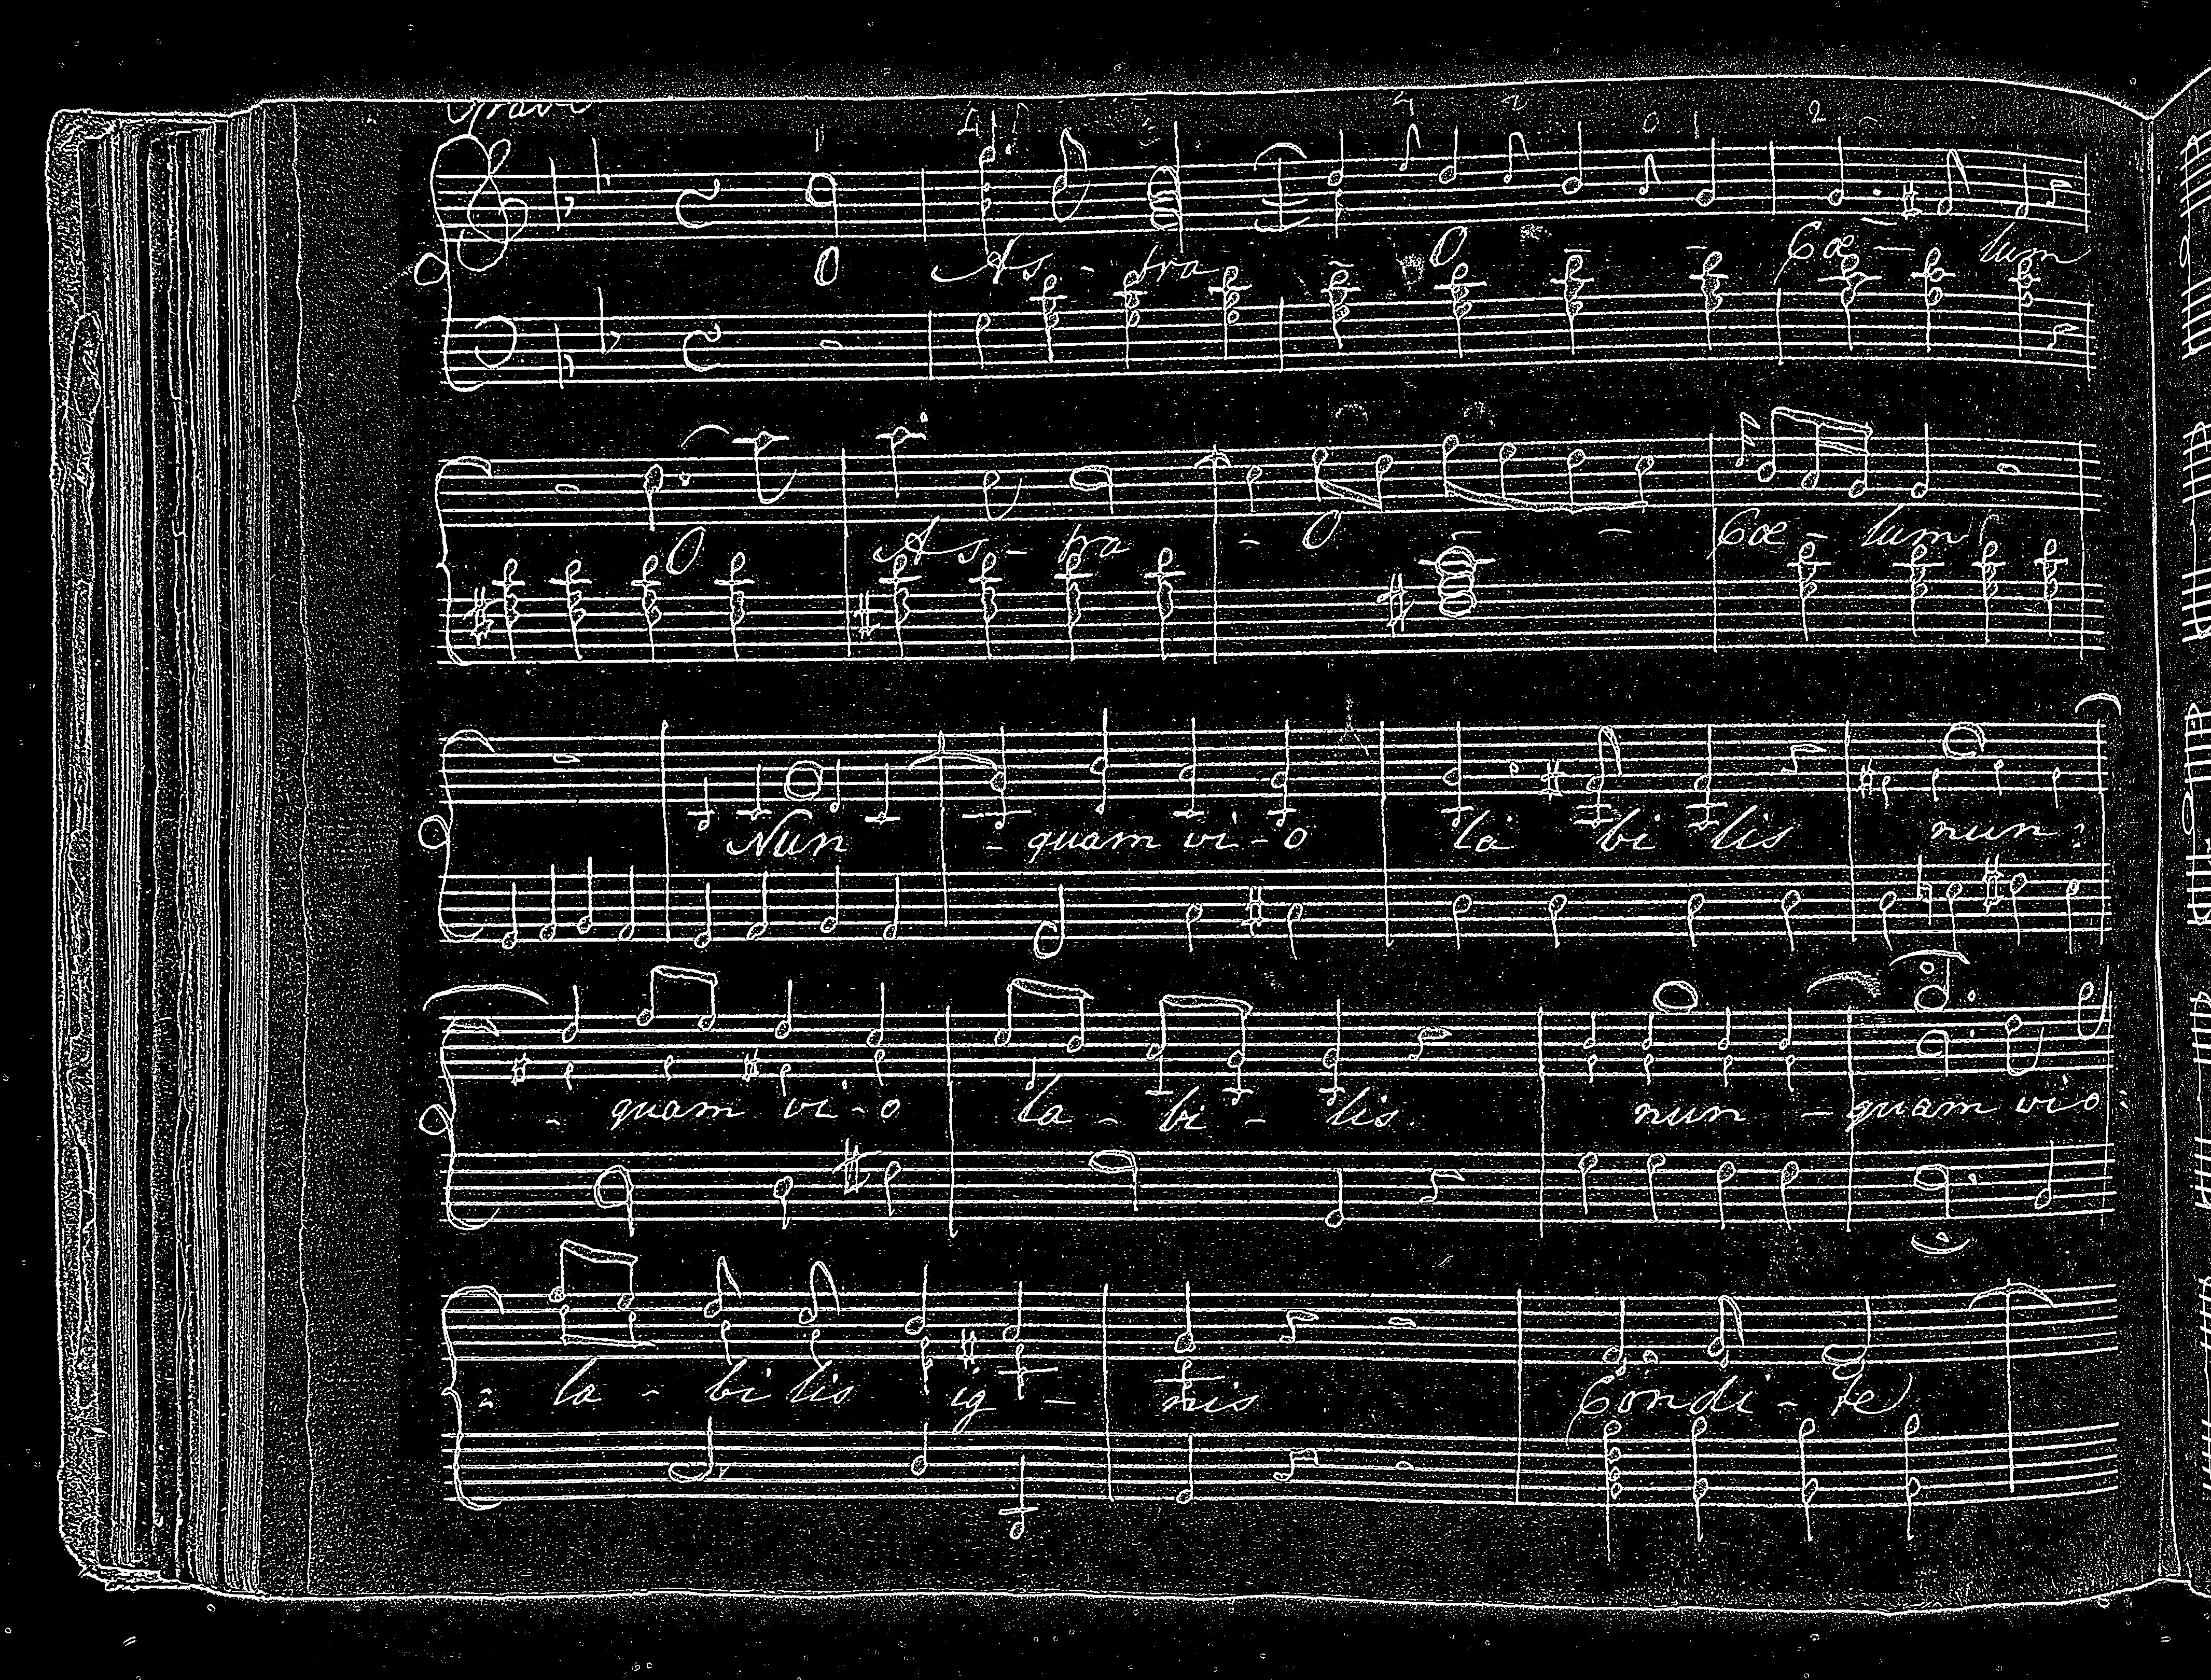 Grave
O As - tra O Cœ - lum
O As - tra - O - - Cœ - lum
Nun - quam vi - o la bi lis nun :
- quam vi - o la - bi - lis. nun - quam vio :
: la - bi lis ig - nis Condi - te